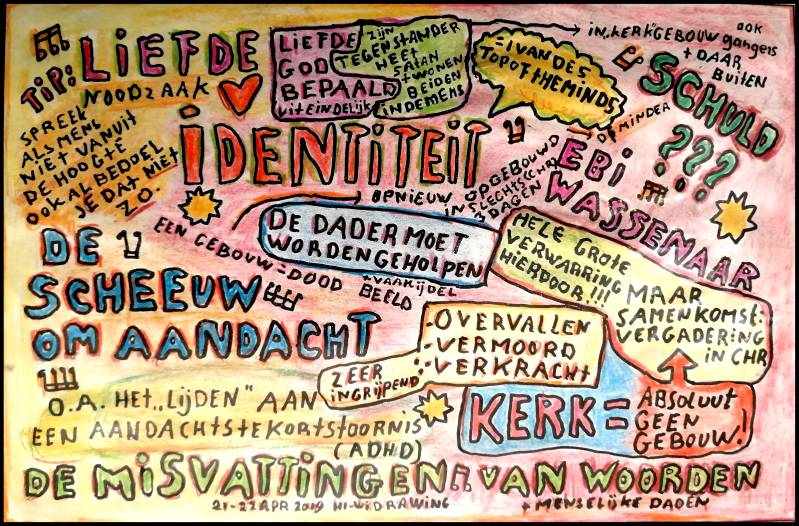 TIP:
LIEFDE
NOODZAAK
SPREEK
ALS MENS
NIET VANUIT
DE HOOGTE
OOK AL BEDOEL
JE DAT NIET
ZO.
LIEFDE
GOD
BEPAALD
UITEINDELIJK
ZIJN
TEGENSTANDER
HEET
SATAN
+ WONEN
BEIDEN
IN DE MENS
IN „KERK"GEBOUW
OOK
gangers
+ DAAR
BUITEN
=1 VAN DE 5
TOP OF THE MINDS
OP MINDER
SCHULD
???
IDENTITEIT
EBI
WASSENAAR
OPNIEUW
OPGEBOUWD
IN SLECHTS (CHR)
3 DAGEN
EEN GEBOUW = DOOD
+ VAAK IJDEL
BEELD
DE DADER MOET
WORDEN GEHOLPEN
HELE GROTE
VERWARRING
HIERDOOR!!!
MAAR
SAMENKOMST:
VERGADERING
IN CHR
DE
SCHEEUW
OM AANDACHT
-OVERVALLEN
-VERMOORD
-VERKRACHT
ZEER
INGRIJPEND
O.A. HET „LIJDEN" AAN
EEN AANDACHTSTEKORTSTOORNIS
(ADHD)
KERK =
ABSOLUUT
GEEN
GEBOUW!
DE MISVATTINGEN VAN WOORDEN
21-22 APR 2019 HI-WI DRAWING
+ MENSELIJKE DADEN